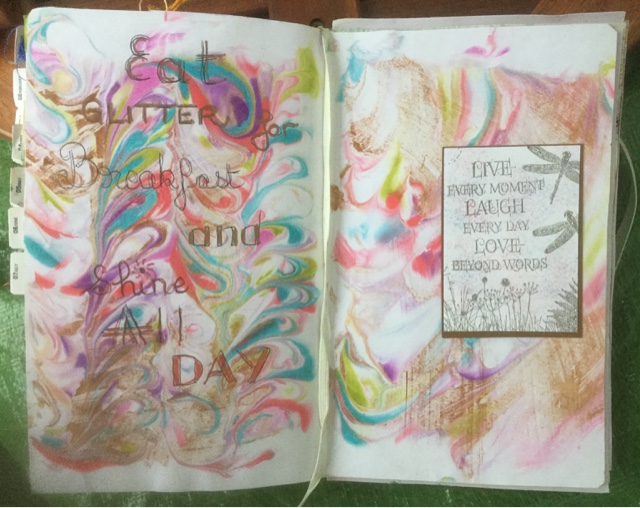 Eat
GLITTER
for
Breakfast
and
Shine
All
DAY
LIVE
EVERY MOMENT
LAUGH
EVERY DAY
LOVE
BEYOND WORDS